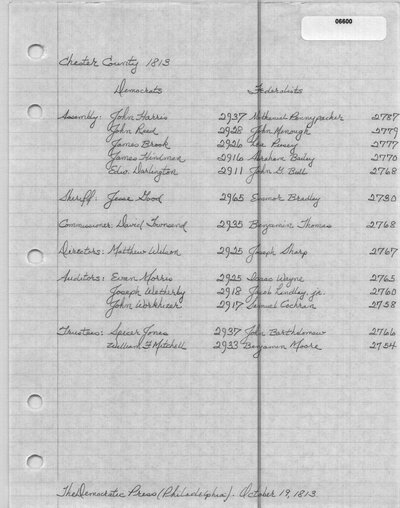 06600
Chester County 1813
Democrats Federalists
Assembly: John Harris 2937 Nathaniel Pennypacker 2787
John Reed 2928 John Menough 2779
James Brook 2926 Lea Pusey 2777
James Hindman 2916 Abraham Bailey 2770
Edw. Darlington 2911 John G. Bull 2768
Sheriff: Jesse Good 2965 Emmor Bradley 2730
Commissioner: David Townsend 2935 Benjamin Thomas 2768
Directors: Matthew Wilson 2925 Joseph Sharp 2767
Auditors: Evan Morris 2925 Isaac Wayne 2765
Joseph Wetherby 2918 Jacob Lindley, jr. 2760
John Workhizer 2917 Samuel Cochran 2758
Trustees: Spicer Jones 2937 John Bartholomew 2766
William F Mitchell 2933 Benjamin Moore 2754
The Democratic Press (Philadelphia). October 19, 1813